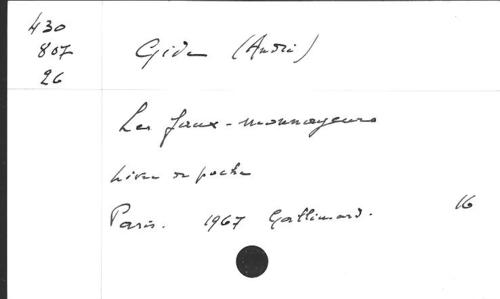 430
807
26
Gide (André)
Les faux-monnayeurs
Livre de poche
Paris. 1967 Gallimard. 16